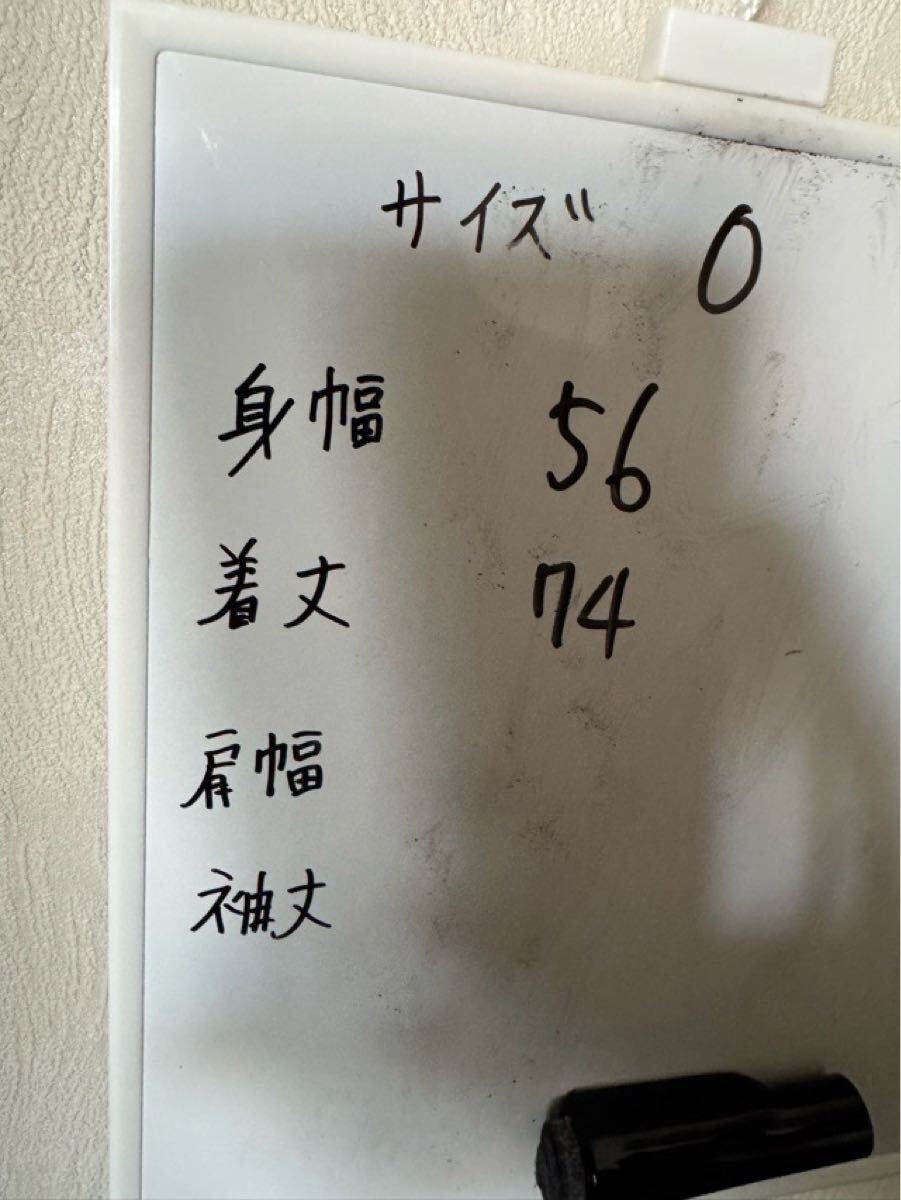 サイズ 0
身幅 56
着丈 74
肩幅
袖丈